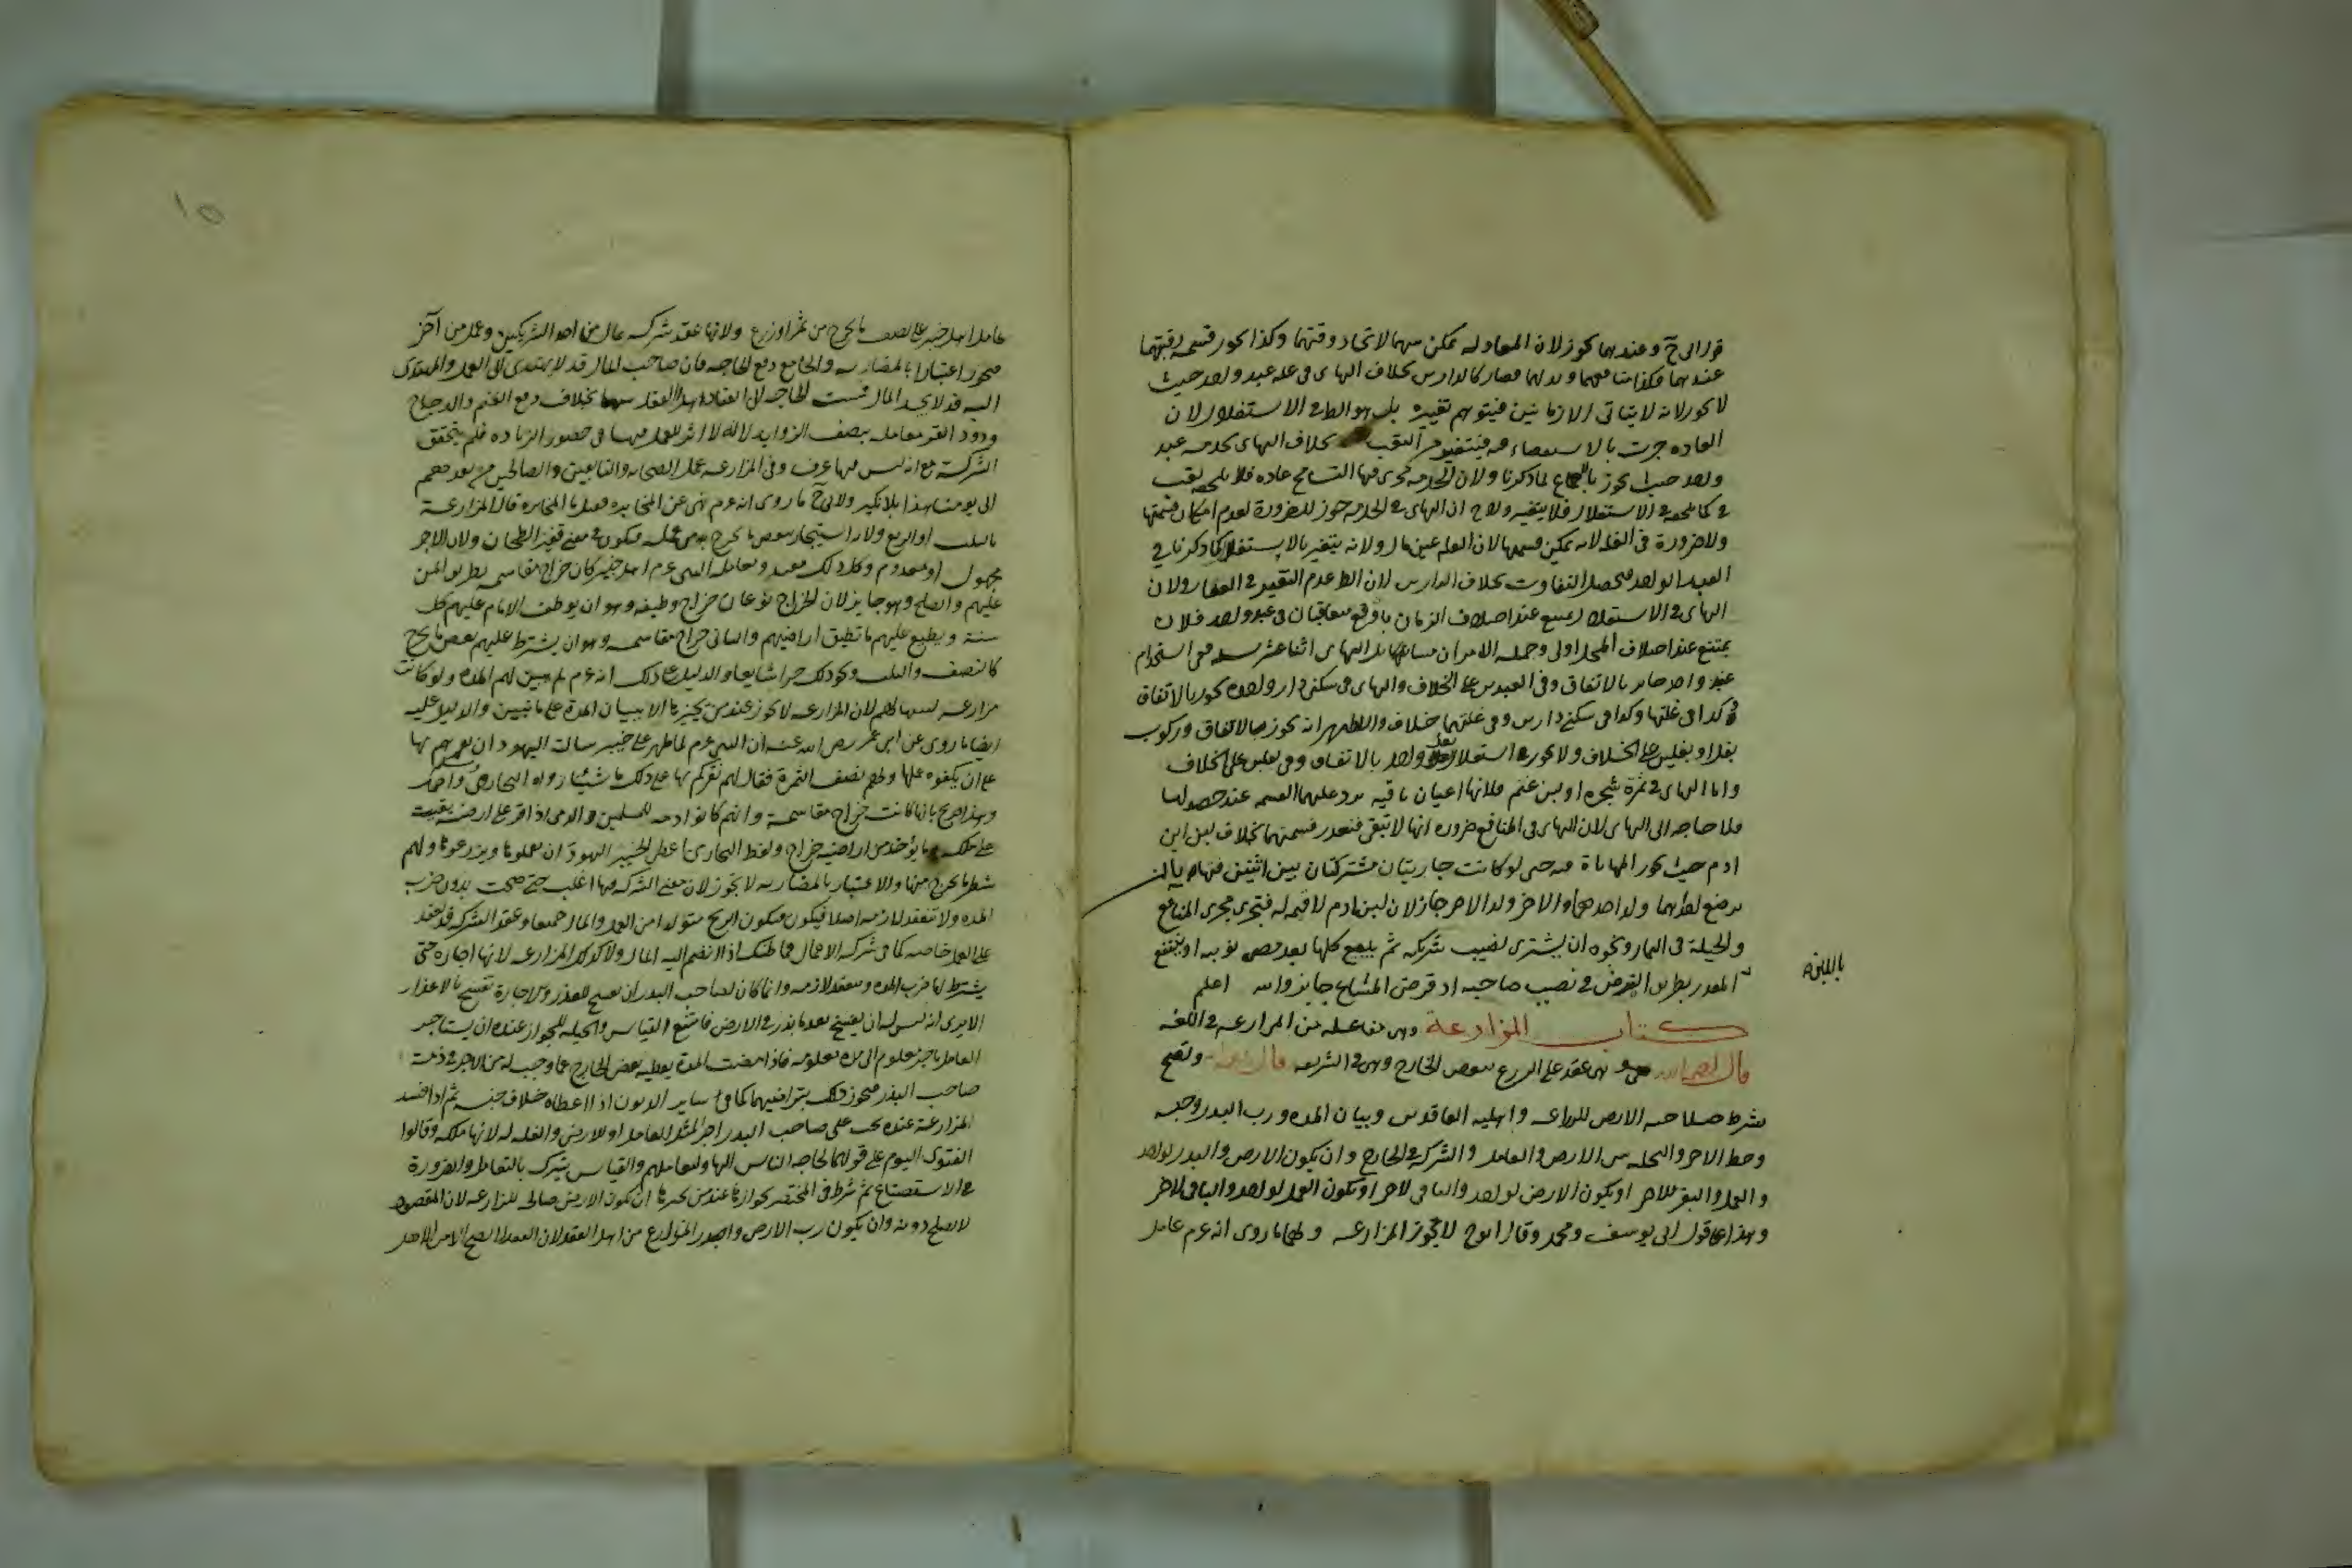 قول ابي ح وعندهما يجوز لان المعادلة ممكن منهما لاتحاد وقتهما وكذا يجوز قسمة رقبتهما
عندهما فكذا منافعهما ولد لهما فصار كالدارين بخلاف التهايئ في غلة عبد واحد حيث
لا يجوز لانه لا يتأتى الا زمانين فيتوهم تغييره بل هو الظاهر في الاستغلال لان
العادة جرت بالاستقصاء فيه فيتغير التعب بخلاف التهايئ بخدمة عبد
واحد حيث يجوز بالاجماع لما ذكرنا ولان الخدمة يجري فيها التسامح عادة فلا يلحقه تعب
كما يلحقه في الاستغلال فلا يتغير ولابي ح ان التهايئ في الخدمة جوز للضرورة لعدم امكان قسمتها
ولا ضرورة في الغلة لانه يمكن قسمتها لان الغلة عين مال ولانه يتغير بالاستغلال كما ذكرنا في
العبد الواحد فيحصل التفاوت بخلاف الدارين لان الظاهر عدم التغير في العقار ولان
التهايئ في الاستغلال يمتنع عند اختلاف الزمان في عبد واحد فلان
يمتنع عند اختلاف المحل اولى وجملة الامر ان مسائل التهايئ اثنا عشر مسئلة ففي استخدام
عبد واحد جائز بالاتفاق وفي العبدين على الخلاف والتهايئ في سكنى دار واحدة يجوز بالاتفاق
وكذا في غلتها وكذا في سكنى دارين وفي غلتهما خلاف والاظهر انه يجوز بالاتفاق وركوب
بغل او بغلين على الخلاف ولا يجوز في استغلال بغل واحد بالاتفاق وفي بغلين على الخلاف
واما التهايئ في ثمرة شجرة او لبن غنم فلانها اعيان باقية ترد عليهما القسمة عند حصولها
فلا حاجة الى التهايئ لان التهايئ في المنافع ضرورة انها لا تبقى فتعذر قسمتها بخلاف لبن ابن
ادم حيث يجوز المهاياة فيه حتى لو كانت جاريتان مشتركتان بين اثنين فتهايآ ان
ترضع احداهما ولد احدهما والاخرى ولد الاخر جاز لان لبن ادم لا قيمة له فتجري مجرى المنافع
والحيلة في الثمار ونحوه ان يشتري نصيب شريكه ثم يبيع كلها بعد مضي نوبته او ينتفع
المقدر بطريق القرض في نصيب صاحبه اذ قرض المشاع جائز والله اعلم
باللبن
كتاب المزارعة وهي مفاعلة من المزارعة في اللغة
قال رحمه الله هي عقد على الزرع ببعض الخارج وهي في الشريعة قال رحمه الله وتصح
بشرط صلاحية الارض للزراعة واهلية العاقدين وبيان المدة ورب البذر وجنسه
وحظ الاخر والتخلية بين الارض والعامل والشركة في الخارج وان يكون الارض والبذر لواحد
والعمل والبقر للاخر او يكون الارض لواحد والباقي لاخر او يكون العمل لواحد والباقي لاخر
وهذا على قول ابي يوسف ومحمد وقال ابو ح لا يجوز المزارعة ولهما ما روي انه عم عامل
١٥
عامل اهل خيبر على نصف ما يخرج من ثمر او زرع ولانها عقد شركة بمال من احد الشريكين وعمل من اخر
فيجوز اعتبارا بالمضاربة والجامع دفع الحاجة فان صاحب المال قد لا يهتدي الى العمل والمهتدي
اليه قد لا يجد المال فمست الحاجة الى انعقاد هذا العقد بينهما بخلاف دفع الغنم والدجاج
ودود القز معاملة بنصف الزوايد لانه لا اثر للعمل فيها في حصول الزيادة فلم يتحقق
الشركة مع انه ليس فيها عرف وفي المزارعة عمل الصحابة والتابعين والصالحين من بعدهم
الى يومنا هذا بلا نكير ولابي ح ما روي انه عم نهى عن المخابرة فقيل ما المخابرة قال المزارعة
بالثلث او الربع ولانه استيجار ببعض ما يخرج من عمله فيكون في معنى قفيز الطحان ولان الاجر
مجهول او معدوم وكل ذلك مفسد ومعاملة النبي عم اهل خيبر كان خراج مقاسمة بطريق المن
عليهم والصلح وهو جايز لان الخراج نوعان خراج وظيفة وهو ان يوظف الامام عليهم كل
سنة ويضع عليهم ما تطيق اراضيهم والثاني خراج مقاسمة وهو ان يشترط عليهم بعض ما يخرج
كالنصف والثلث ونحو ذلك جزءا شايعا والدليل على ذلك انه عم لم يبين لهم المدة ولو كانت
مزارعة لبينها لهم لان المزارعة لا تجوز عند من يجيزها الا ببيان المدة على ما نبين والدليل عليه
ايضا ما روي عن ابن عمر رضي الله عنه ان النبي عم لما ظهر على خيبر سالت اليهود ان يقرهم بها
على ان يكفوه عملها ولهم نصف الثمرة فقال لهم نقركم بها على ذلك ما شئنا رواه البخاري واحمد
وهذا صريح بانها كانت خراج مقاسمة وانهم كانوا ذمة للمسلمين والذمي اذا اقر على ارضه بقيت
على ملكه وما يؤخذ من اراضيه خراج ولفظ البخاري اعطى خيبر اليهود ان يعملوها ويزرعوها ولهم
شطر ما يخرج منها والاعتبار بالمضاربة لا يجوز لان معنى الشركة فيها اغلب حتى صحت بدون ضرب
المدة ولا تنعقد لازمة اصلا فيكون الربح متولدا من العمل والمال جميعا وعقد الشركة قد ينعقد
على العمل خاصة كما في شركة الاعمال فما ظنك اذا انضم اليه المال ولا كذلك المزارعة لانها اجارة حتى
يشترط لها ضرب المدة وينعقد لازمة وانما كان لصاحب البذر ان يفسخ للعذر والاجارة تفسخ بالاعذار
الا يرى انه ليس له ان يفسخ بعد ما بذر في الارض فامتنع القياس والحيلة للجواز عنده ان يستاجر
العامل باجر معلوم الى مدة معلومة فاذا مضت المدة يعطيه بعض الخارج عما وجب له من الاجر في ذمة
صاحب البذر فيجوز ذلك بتراضيهما كما في ساير الديون اذا اعطاه خلاف جنسه ثم اذا فسد
المزارعة عنده يجب على صاحب البذر اجر المثل للعامل او للارض والغلة له لانها ملكه وقالوا
الفتوى اليوم على قولهما لحاجة الناس اليها ولتعاملهم والقياس يترك بالتعامل والضرورة
كما في الاستصناع ثم شرط في المختصر لجوازها عند من يجيزها ان يكون الارض صالحة للمزارعة لان المقصود
لا يحصل دونه وان يكون رب الارض والمزارع من اهل العقد لان العقد لا يصح الا من الاهل